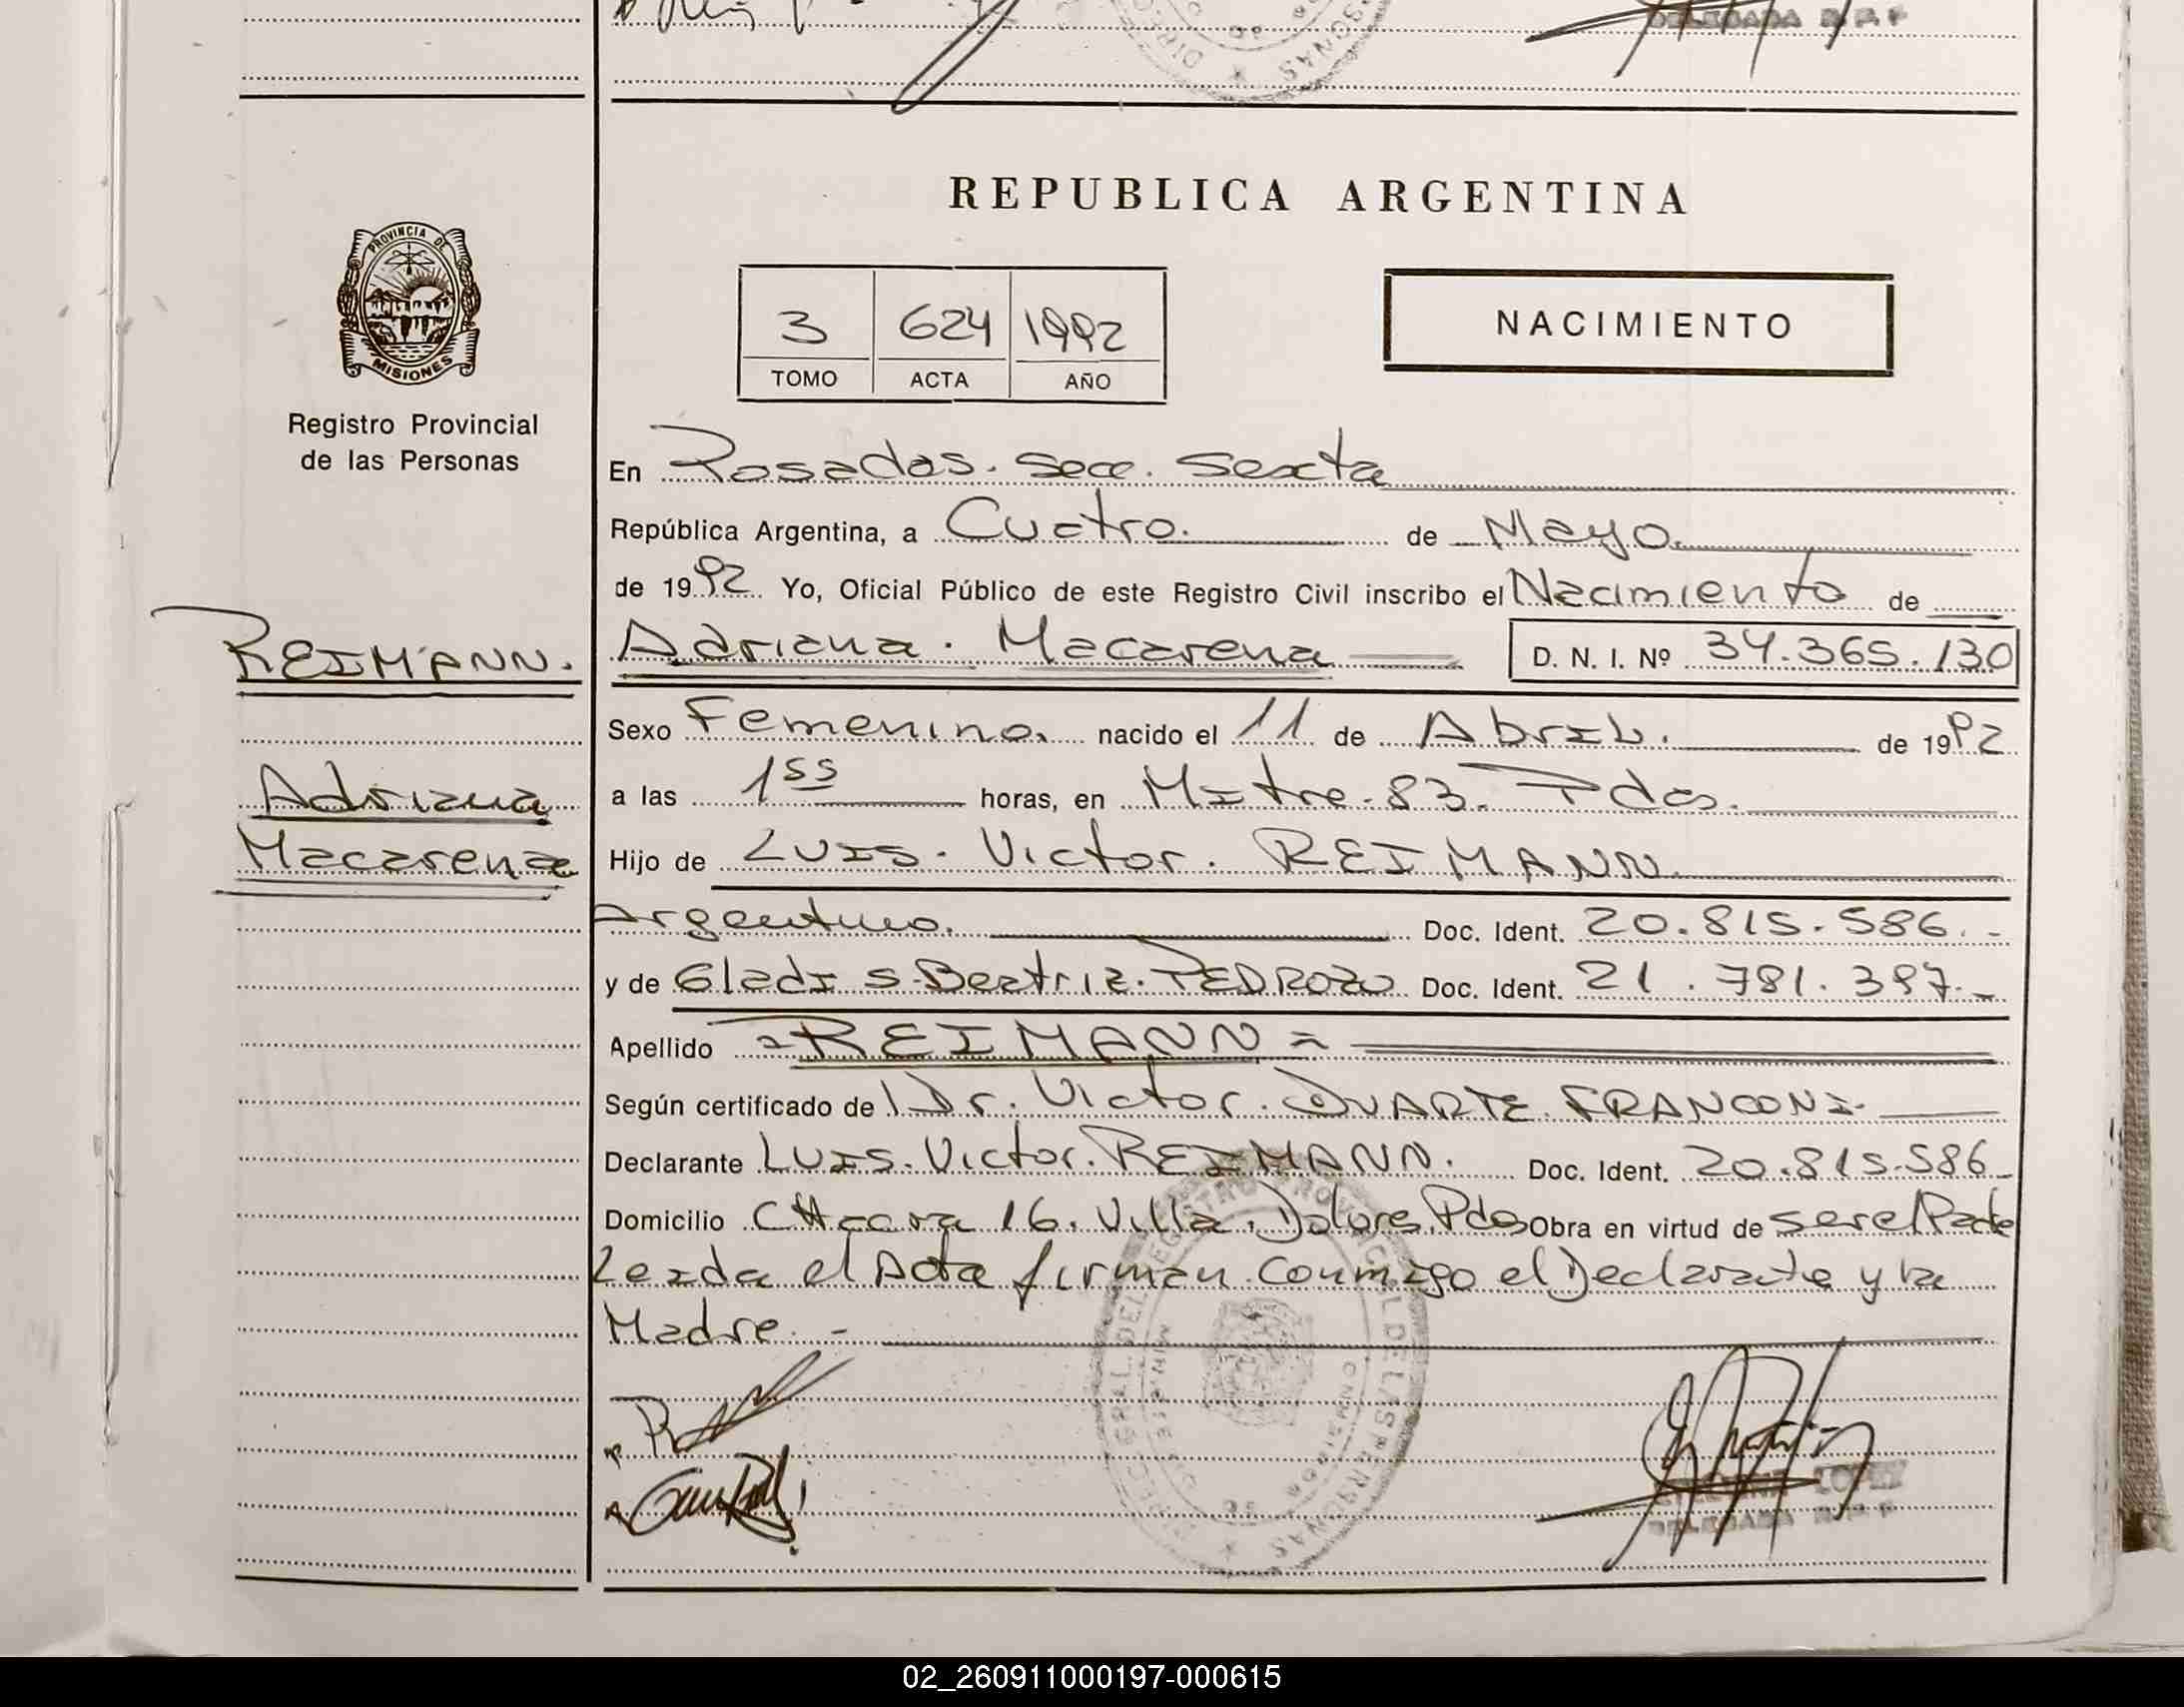 DELEGADA R P P
REPUBLICA ARGENTINA
PROVINCIA DE
MISIONES
3 624 1992
TOMO ACTA AÑO
NACIMIENTO
Registro Provincial
de las Personas
En Posadas. Secc. Sexta
República Argentina, a Cuatro. de Mayo.
de 1992 Yo, Oficial Público de este Registro Civil inscribo el Nacimiento de
REIMANN. Adriana. Macarena D. N. I. Nº 34.365.130
Sexo Femenino. nacido el 11 de Abril. de 1992
Adriana a las 1⁵⁵ horas, en Mitre. 83. Pdas.
Macarena Hijo de Luis. Victor. REIMANN.
Argentino. Doc. Ident. 20.815.586.-
y de Gladis. Beatriz. PEDROZO Doc. Ident. 21.781.397.-
Apellido =REIMANN=
Según certificado de Dr. Victor. DUARTE. FRANCONI.
Declarante LUIS. Victor. REIMANN. Doc. Ident. 20.815.586
Domicilio CHacra 16. Villa. Dolores. Pdas Obra en virtud de ser el Padre
Leida el Acta firman conmigo el Declarante y la
Madre.-
REGISTRO PROVINCIAL DE LAS PERSONAS
LOPEZ
DELEGADA R P P
02_260911000197-000615